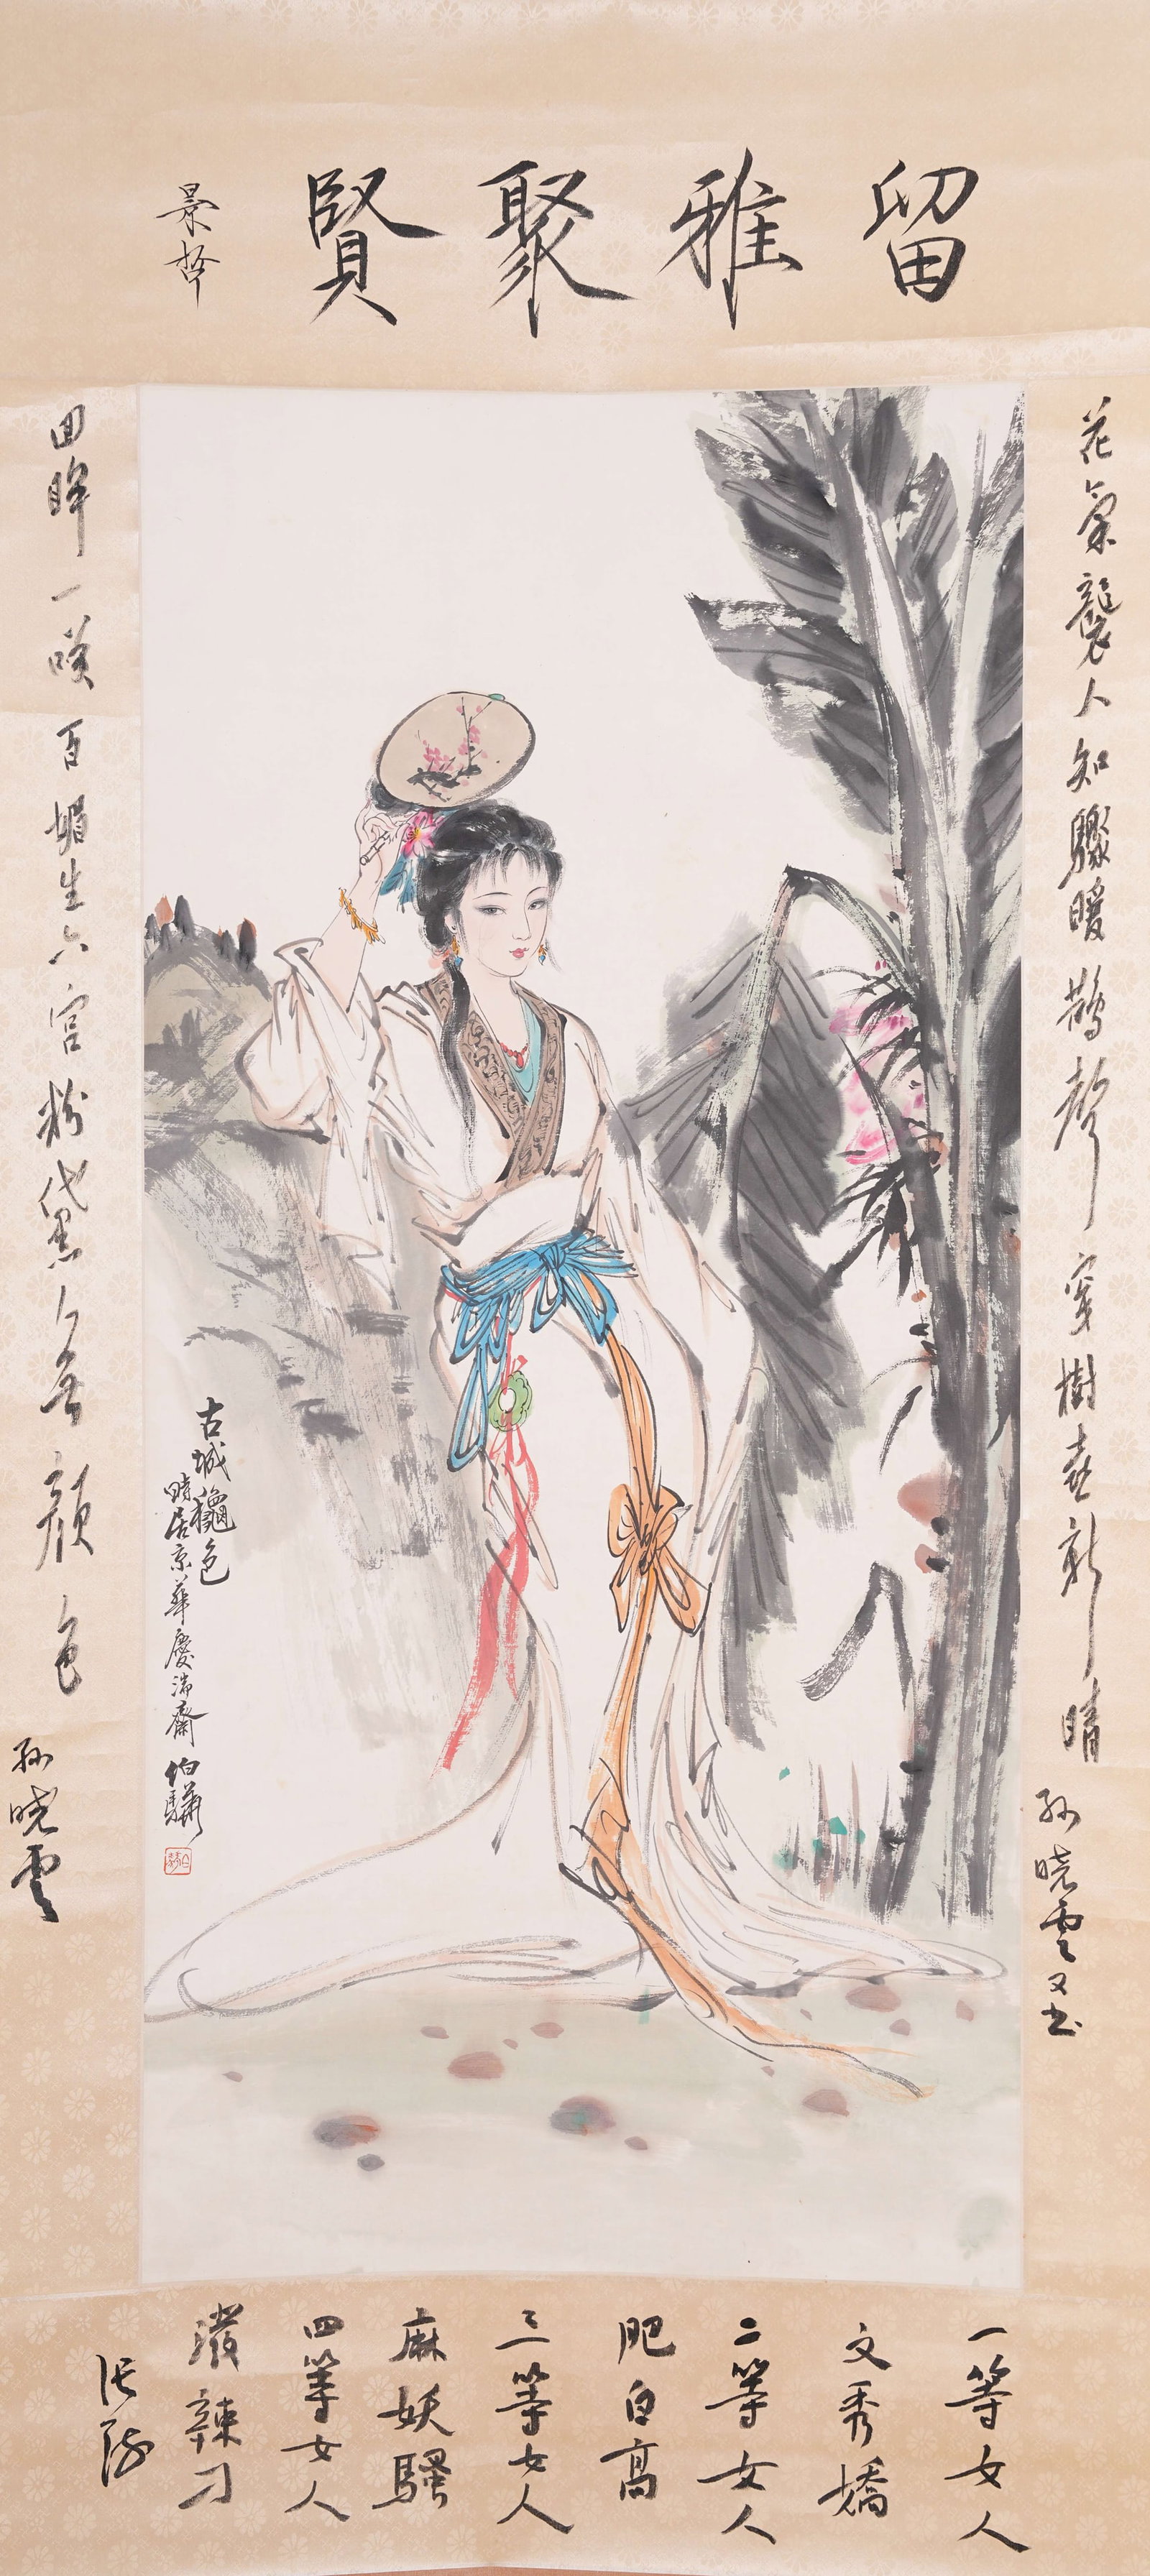 留雅聚賢
景哲
花氣襲人知驟暖鵲聲穿樹喜新晴
孫晓雲又书
回眸一咲百媚生六宫粉黛无颜色
孫晓雲
古城龝色
時居京華慶瑞齋伯驌
一等女人
文秀嬌
二等女人
肥白高
三等女人
麻妖騷
四等女人
潑辣刁